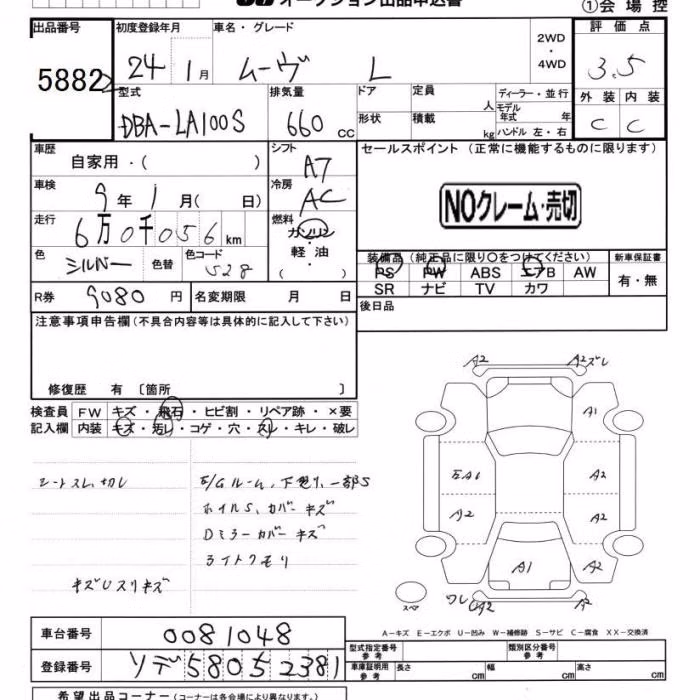 オークション出品申込書
①会場控
出品番号 初度登録年月 車名・グレード 2WD・4WD 評価点
5882 24 1月 ムーヴ L 3.5
型式 排気量 ドア 定員 人 ディーラー・並行 外装 内装
DBA-LA100S 660 cc 形状 積載 kg モデル年式 年 ハンドル 左・右 C C
車歴 シフト セールスポイント (正常に機能するものに限ります)
自家用・( ) A7
車検 冷房
9年1月( 日) AC NOクレーム・売切
走行 燃料
6万0千056km ガソリン
色 色替 色コード 軽油
シルバー 528 ( )
装備品 (純正品に限り○をつけてください) 新車保証書
PS PW ABS エアB AW 有・無
SR ナビ TV カワ
R券 9080円 名変期限 月 日 後日品
注意事項申告欄(不具合内容等は具体的に記入して下さい)
修復歴 有 〔箇所 〕
検査員 FW キズ・飛石・ヒビ割・リペア跡・×要
記入欄 内装 キズ・汚レ・コゲ・穴・スレ・キレ・破レ
シートスレ、切レ
ホイルS、カバーキズ
Dミラーカバーキズ
ライトクモリ
キズUスリキズ
A2 A2ズレ
A1
A2
A2 A2
A1 A2
ワレ A2
スペア
A-キズ E-エクボ U-凹み W-補修跡 S-サビ C-腐食 XX-交換済
車台番号 0081048
登録番号 ソデ 580 5 2381
型式指定番号 参考 類別区分番号 参考
車庫証明用 参考 長さ cm 幅 cm 高さ cm
希望出品コーナー (コーナーは各会場により異なります。)